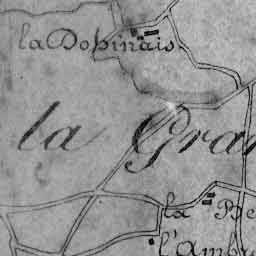 la Dopinais
la Gran
la Be
l'Ambr